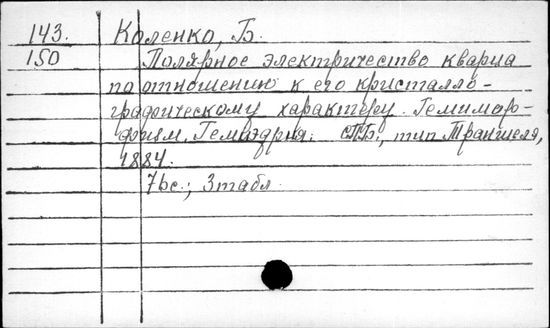 143. Коленко, Б.
150 Полярное электричество кварца
по отношению к его кристалло-
графическому характеру. Гемимор-
физм. Гемиэдрия. СПБ., тип Траншеля,
1884.
76с.; 3 табл.